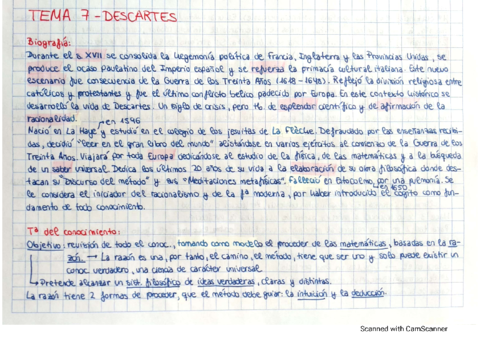 TEMA 7 - DESCARTES
Biografía:
Durante el s. XVII se consolida la hegemonía política de Francia, Inglaterra y las Provincias Unidas, se
produce el ocaso paulatino del Imperio español y se refuerza la primacía cultural italiana. Este nuevo
escenario fue consecuencia de la Guerra de los Treinta Años (1618-1648). Reflejó la división religiosa entre
católicos y protestantes y fue el último conflicto bélico padecido por Europa. En este contexto histórico se
desarrolló la vida de Descartes. Un siglo de crisis, pero tb. de esplendor científico y de afirmación de la
racionalidad.
en 1596
Nació en La Haye y estudió en el colegio de los jesuitas de La Flèche. Defraudado por las enseñanzas recibi-
das, decidió "leer en el gran libro del mundo" alistándose en varios ejércitos al comienzo de la Guerra de los
Treinta Años. Viajará por toda Europa dedicándose al estudio de la física, de las matemáticas y a la búsqueda
de un saber universal. Dedica los últimos 20 años de su vida a la elaboración de su obra filosófica donde des-
tacan su "Discurso del método" y sus "Meditaciones metafísicas". Falleció en Estocolmo, por una pulmonía. Se
en 1650
le considera el iniciador del racionalismo y de la fª moderna, por haber introducido el cogito como fun-
damento de todo conocimiento.
Tª del conocimiento:
Objetivo: revisión de todo el conoc., tomando como modelo el proceder de las matemáticas, basadas en la ra-
zón. → La razón es una, por tanto, el camino, el método, tiene que ser uno y solo puede existir un
conoc. verdadero, una ciencia de carácter universal.
→ Pretende alcanzar un sist. filosófico de ideas verdaderas, claras y distintas.
La razón tiene 2 formas de proceder, que el método debe guiar: la intuición y la deducción.
Scanned with CamScanner